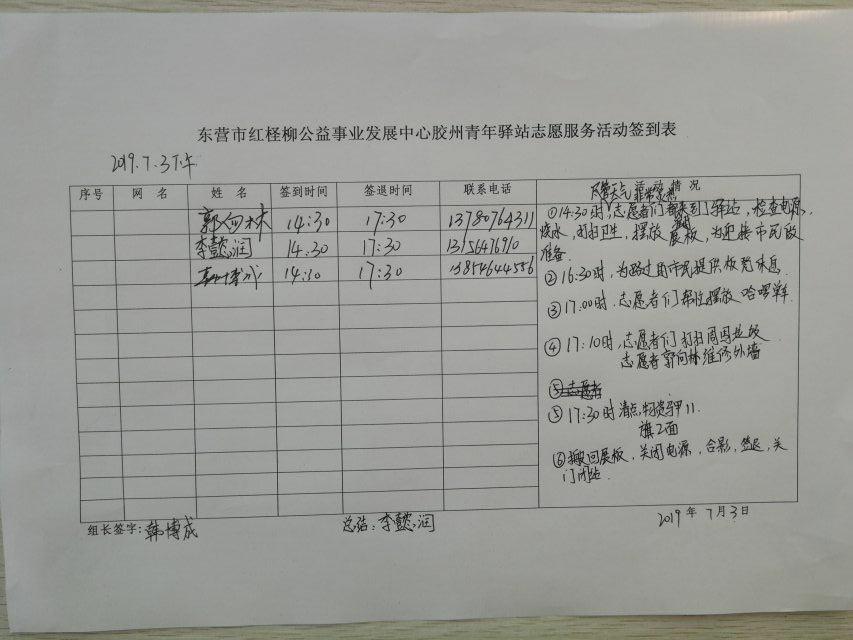 东营市红柽柳公益事业发展中心胶州青年驿站志愿服务活动签到表
2019.7.3下午
序号 网 名 姓 名 签到时间 签退时间 联系电话 活动情况
尽管天气非常炎热
郭向林 14:30 17:30 13780764311
李懿润 14:30 17:30
韩博成 14:30 17:30 13854644556
①14:30时,志愿者们都来到了驿站,检查电源,
烧水,打扫卫生,摆放展板,为迎接市民做
准备.
②16:30时,为路过的市民提供板凳休息
③17:00时.志愿者们帮忙摆放哈啰单车.
④17:10时,志愿者们打扫周围垃圾
志愿者郭向林维修外墙
⑤志愿者
⑤17:30时清点物资马甲11.
旗2面
⑥搬回展板,关闭电源,合影,签退,关
门闭站.
组长签字:韩博成 总结:李懿润 2019年7月3日